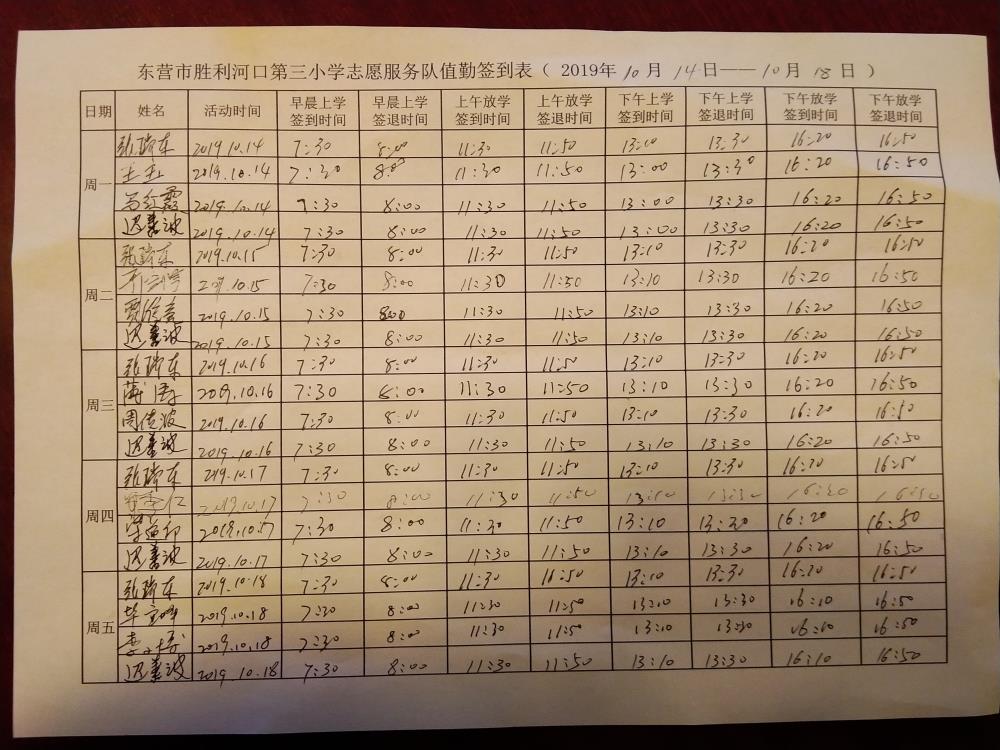 东营市胜利河口第三小学志愿服务队值勤签到表（ 2019年 10 月 14 日——10 月 18 日 ）
日期 姓名 活动时间 早晨上学签到时间 早晨上学签退时间 上午放学签到时间 上午放学签退时间 下午上学签到时间 下午上学签退时间 下午放学签到时间 下午放学签退时间
周一 张瑞东 2019.10.14 7:30 8:00 11:30 11:50 13:00 13:30 16:20 16:50
2019.10.14 7:30 8:00 11:30 11:50 13:00 13:30 16:20 16:50
马红霞 2019.10.14 7:30 8:00 11:30 11:50 13:00 13:30 16:20 16:50
迟善波 2019.10.14 7:30 8:00 11:30 11:50 13:00 13:30 16:20 16:50
周二 张瑞东 2019.10.15 7:30 8:00 11:30 11:50 13:10 13:30 16:20 16:50
2019.10.15 7:30 8:00 11:30 11:50 13:10 13:30 16:20 16:50
2019.10.15 7:30 8:00 11:30 11:50 13:10 13:30 16:20 16:50
迟善波 2019.10.15 7:30 8:00 11:30 11:50 13:10 13:30 16:20 16:50
周三 张瑞东 2019.10.16 7:30 8:00 11:30 11:50 13:10 13:30 16:20 16:50
2019.10.16 7:30 8:00 11:30 11:50 13:10 13:30 16:20 16:50
周传波 2019.10.16 7:30 8:00 11:30 11:50 13:10 13:30 16:20 16:50
迟善波 2019.10.16 7:30 8:00 11:30 11:50 13:10 13:30 16:20 16:50
周四 张瑞东 2019.10.17 7:30 8:00 11:30 11:50 13:10 13:30 16:20 16:50
2019.10.17 7:30 8:00 11:30 11:50 13:10 13:30 16:20 16:50
2019.10.17 7:30 8:00 11:30 11:50 13:10 13:30 16:20 16:50
迟善波 2019.10.17 7:30 8:00 11:30 11:50 13:10 13:30 16:20 16:50
周五 张瑞东 2019.10.18 7:30 8:00 11:30 16:50 13:10 13:30 16:20 16:50
2019.10.18 7:30 8:00 11:30 11:50 13:10 13:30 16:10 16:50
2019.10.18 7:30 8:00 11:30 11:50 13:10 13:30 16:10 16:50
迟善波 2019.10.18 7:30 8:00 11:30 11:50 13:10 13:30 16:10 16:50